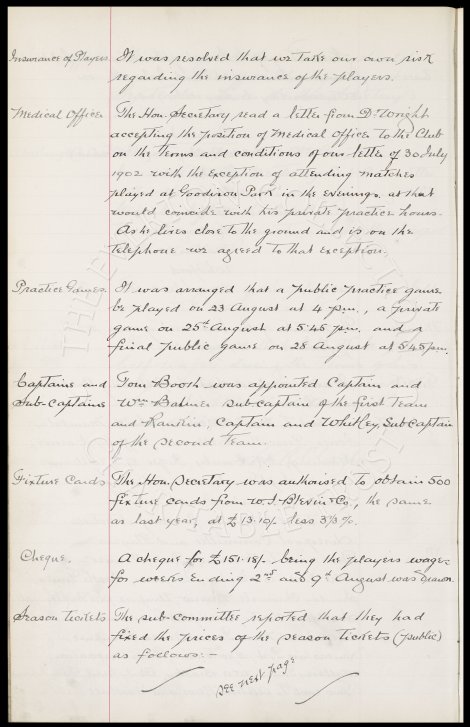 Insurance of Players. It was resolved that we take our own risk
regarding the insurance of the players.
Medical Officer The Hon. Secretary read a letter from Dr. Wright
accepting the position of Medical Officer to the Club
on the terms and conditions of our letter of 30 July
1902 with the exception of attending matches
played at Goodison Park in the evenings, as that
would coincide with his private practice hours.
As he lives close to the ground and is on the
telephone we agreed to that exception.
Practice Games. It was arranged that a public practice game
be played on 23 August at 4 p.m., a private
game on 25th August at 5.45 p.m. and a
final public game on 28 August at 5.45 p.m.
Captains and Tom Booth was appointed Captain and
Sub-Captains Wm Balmer sub-captain of the first team
and Rankin, Captain and Whitley, Sub Captain
of the second team.
Fixture Cards The Hon. Secretary was authorised to obtain 500
fixture cards from W.J. Blevin & Co., the same
as last year, at £3.10/- less 3⅓%.
Cheque. A cheque for £151.18/- being the players wages
for weeks ending 2nd and 9th August was drawn
Season tickets The sub-committee reported that they had
fixed the prices of the season tickets (public)
as follows:-
see next page